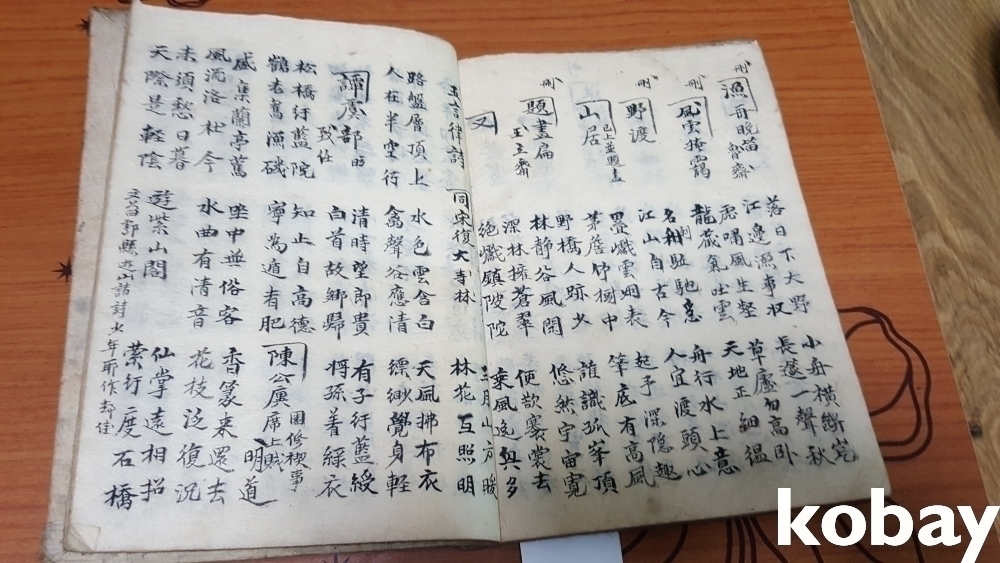 刪 漁舟晩笛 魯齋
落日下大野 小舟橫斷岸
江邊漁事収 長邊一聲秋
刪 風雲掩靄
虎嘯風生壑 草廬勿高卧
龍蔵氣吐雲 天地正細縕
刪 野渡
名利驅馳急 舟行水上意
江山自古今 人宜渡頭心
山居 已上並題畫
疊巘雲烟表 起予深隱趣
茅廬竹樹中 筆底有高風
刪 題畫扇 王主齋
野橋人跡少 誰識孤峯頂
林静谷風閑 悠然宇宙寬
又
深林擁蒼翠 便欲褰裳去
絕巘鎮陂陀 乘風逸興多
五言律詩 同宋復大寺林 月山方暖
林花互照明
路盤層頂上 水色雲含白 天風拂布衣
人在半空行 禽聲谷應清 縹緲覺身輕
譚虞部 致仕
清時望郎貴 有子行藍綬
白首故鄉歸 將孫着綵衣
松橋行藍院 知止自高德
鶴老舊漁磯 寧為遁者肥
陳公廙 園修禊事 席上賦 明道
盛集蘭亭舊 坐中無俗客 香篆來還去
風流洛社今 水曲有清音 花枝泛復沉
未須愁日暮
天際是輕陰
遊紫山閣
仙掌遠相招
縈行二度石橋
kobay